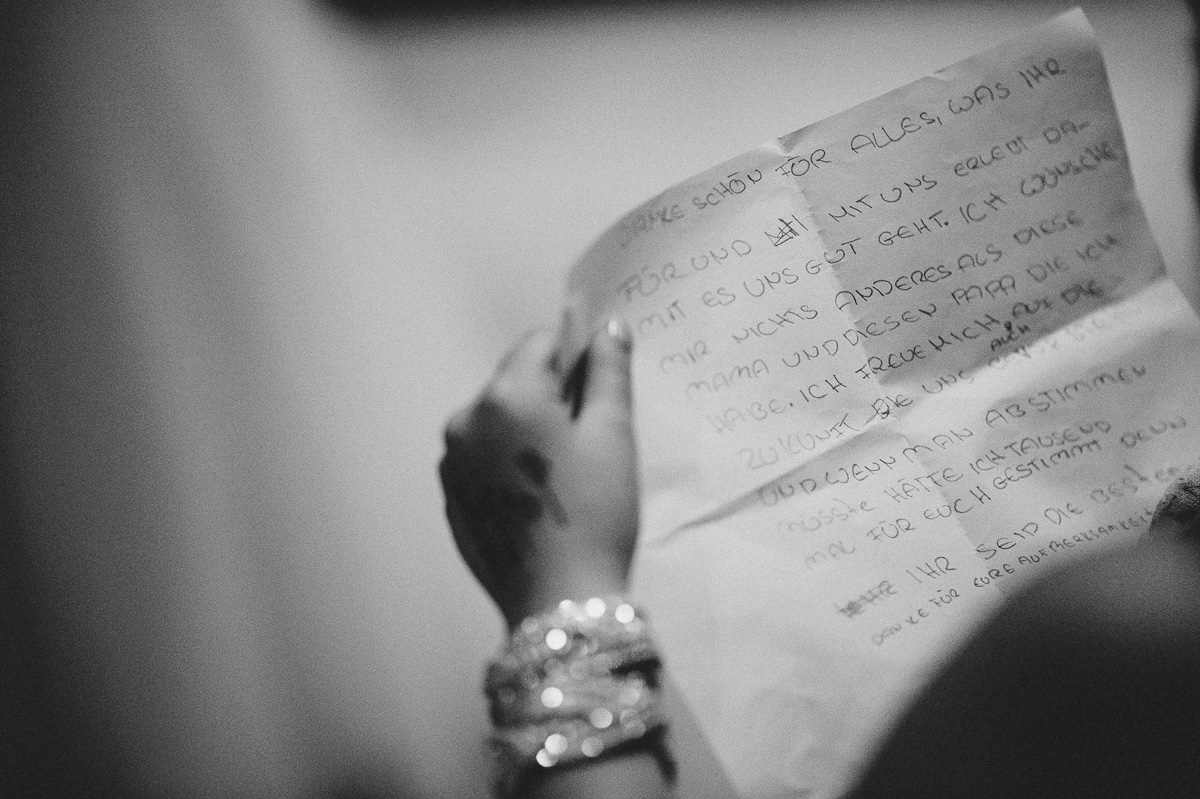 DANKE SCHÖN FÜR ALLES, WAS IHR
FÜR UND MIT UNS ERLEBT DA...
MIT ES UNS GUT GEHT. ICH WÜNSCHE
MIR NICHTS ANDERES ALS DIESE
MAMA UND DIESEN PAPA DIE ICH
HABE. ICH FREUE MICH AUF DIE
ZUKUNFT DIE UNS AUCH
UND WENN MAN ABSTIMMEN
MÜSSTE HÄTTE ICH TAUSEND
MAL FÜR EUCH GESTIMMT DENN
IHR SEID DIE BESTEN
DANKE FÜR EURE AUFMERKSAMKEIT